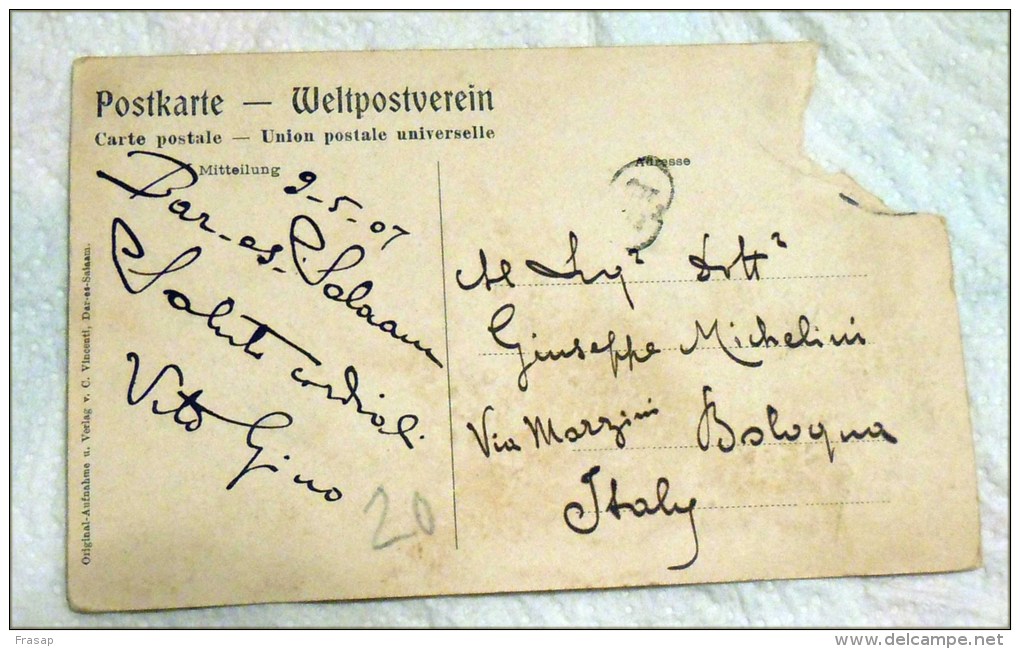 Postkarte — Weltpostverein
Carte postale — Union postale universelle
Mitteilung
Adresse
9-5-07
Dar-es-Salaam
Saluti cordiali
Vito Gino
20
Al Sigr Dottr
Giuseppe Michelini
Via Mazzini Bologna
Italy
Original-Aufnahme u. Verlag v. C. Vincenti, Dar-es-Salaam.
Frasap
delcampe.net